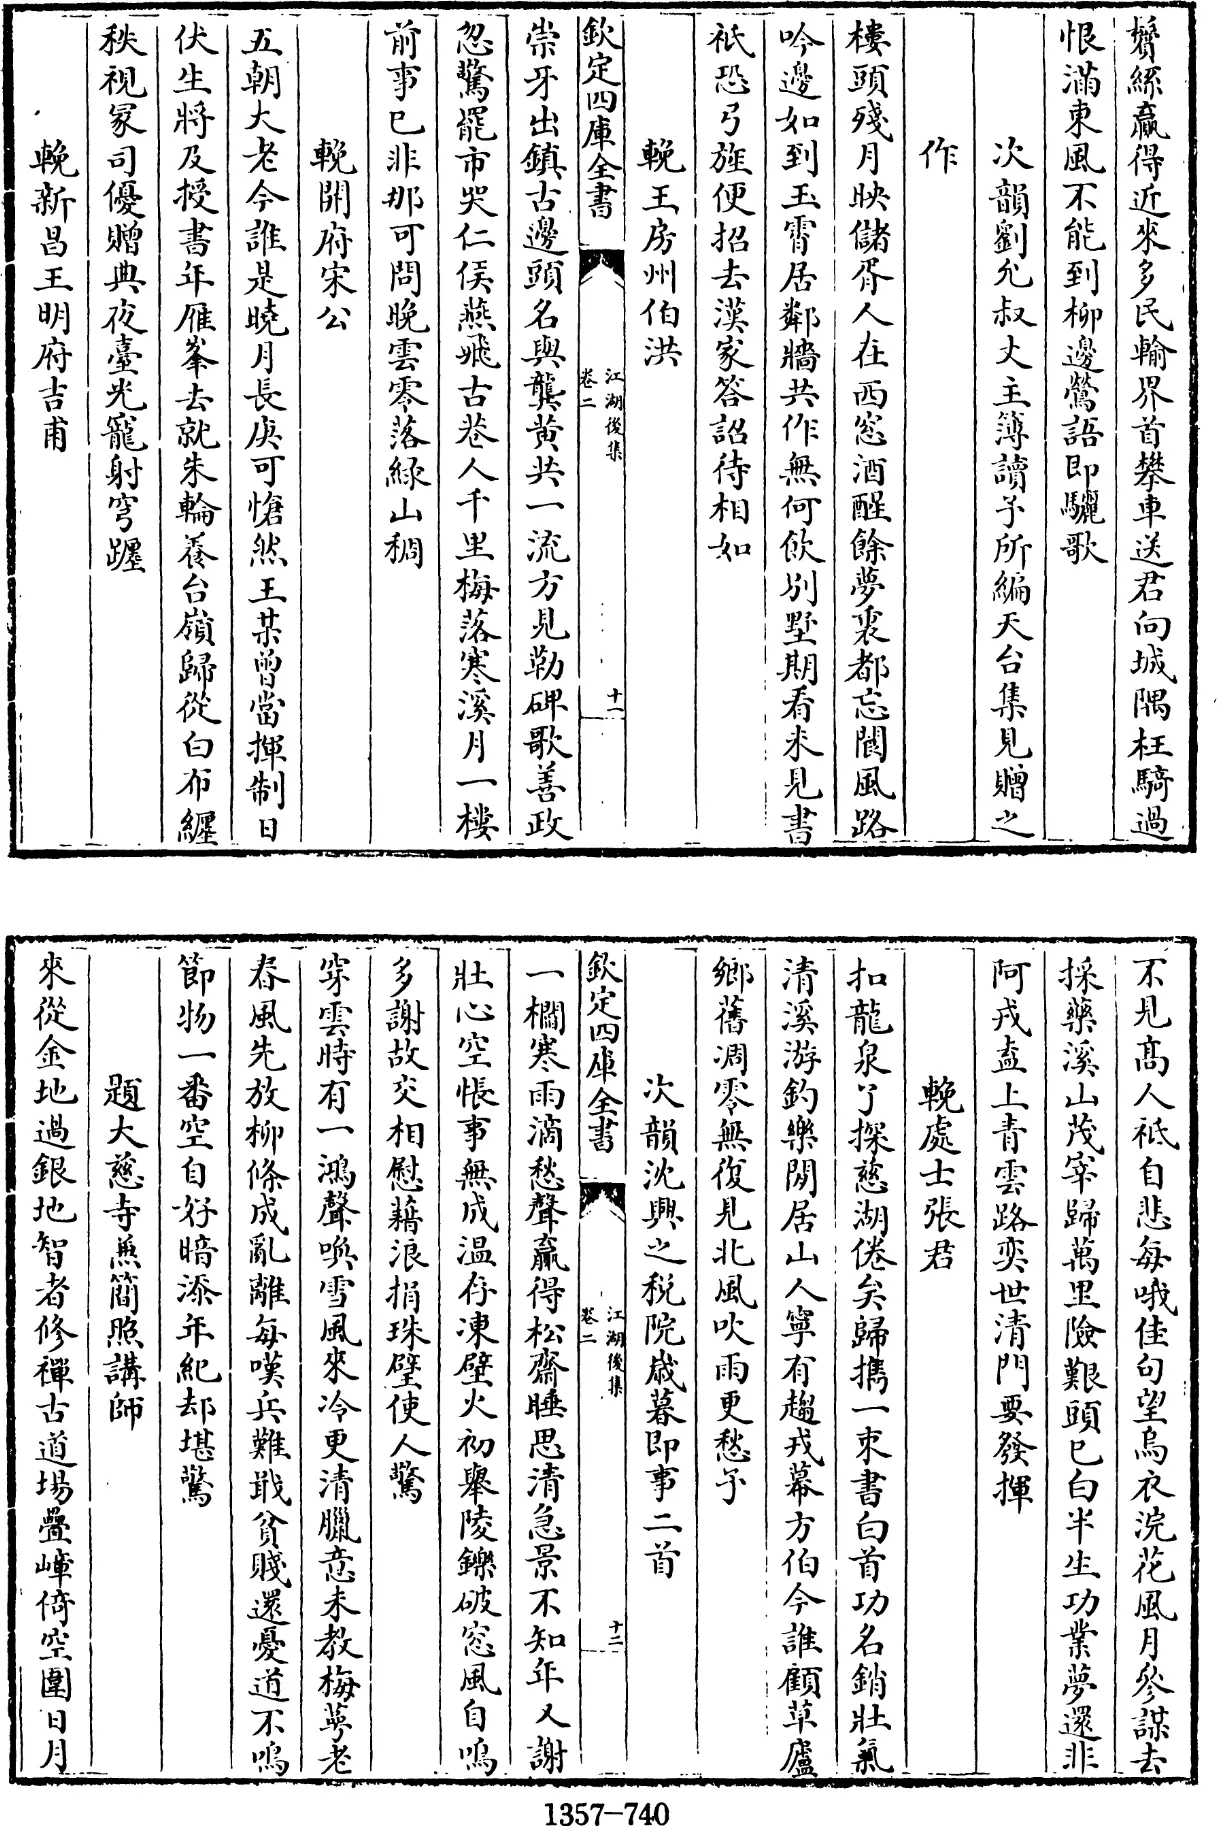 鬢絲贏得近來多民輸界首攀車送君向城隅枉騎過
恨滿東風不能到柳邊鶯語即驪歌
次韻劉允叔丈主簿讀予所編天台集見贈之
作
樓頭殘月映儲胥人在西窓酒醒餘夢裏都忘閬風路
吟邊如到玉霄居鄰牆共作無何飲別墅期看未見書
祇恐弓旌便招去漢家答詔待相如
輓王房州伯洪
欽定四庫全書
江湖後集
卷二
十一
崇牙出鎮古邊頭名與龔黄共一流方見勒碑歌善政
忽驚罷市哭仁侯燕飛古巷人千里梅落寒溪月一樓
前事已非那可問晚雲零落緑山稠
輓開府宋公
五朝大老今誰是曉月長庚可愴然王某曽當揮制日
伏生將及授書年雁峯去就朱輪養台嶺歸從白布纒
秩視冢司優贈典夜臺光寵射穹躔
輓新昌王明府吉甫
不見髙人祇自悲每哦佳句望烏衣浣花風月參謀去
採藥溪山茂宰歸萬里險艱頭已白半生功業夢還非
阿戎盍上青雲路奕世清門要發揮
輓處士張君
扣龍泉了探慈湖倦矣歸擕一束書白首功名銷壯氣
清溪游釣樂閒居山人寧有趨戎幕方伯今誰顧草廬
鄉舊凋零無復見北風吹雨更愁予
次韻沈興之税院歲暮即事二首
欽定四庫全書
江湖後集
卷二
十二
一櫩寒雨滴愁聲贏得松齋睡思清急景不知年又謝
壯心空悵事無成温存凍壁火初舉陵鑠破窓風自鳴
多謝故交相慰藉浪捐珠璧使人驚
穿雲時有一鴻聲喚雪風來冷更清臘意未教梅萼老
春風先放柳條成亂離每嘆兵難戢貧賤還憂道不鳴
節物一番空自好暗添年紀却堪驚
題大慈寺兼簡照講師
來從金地過銀地智者修禪古道場疊嶂倚空圍日月
1357-740